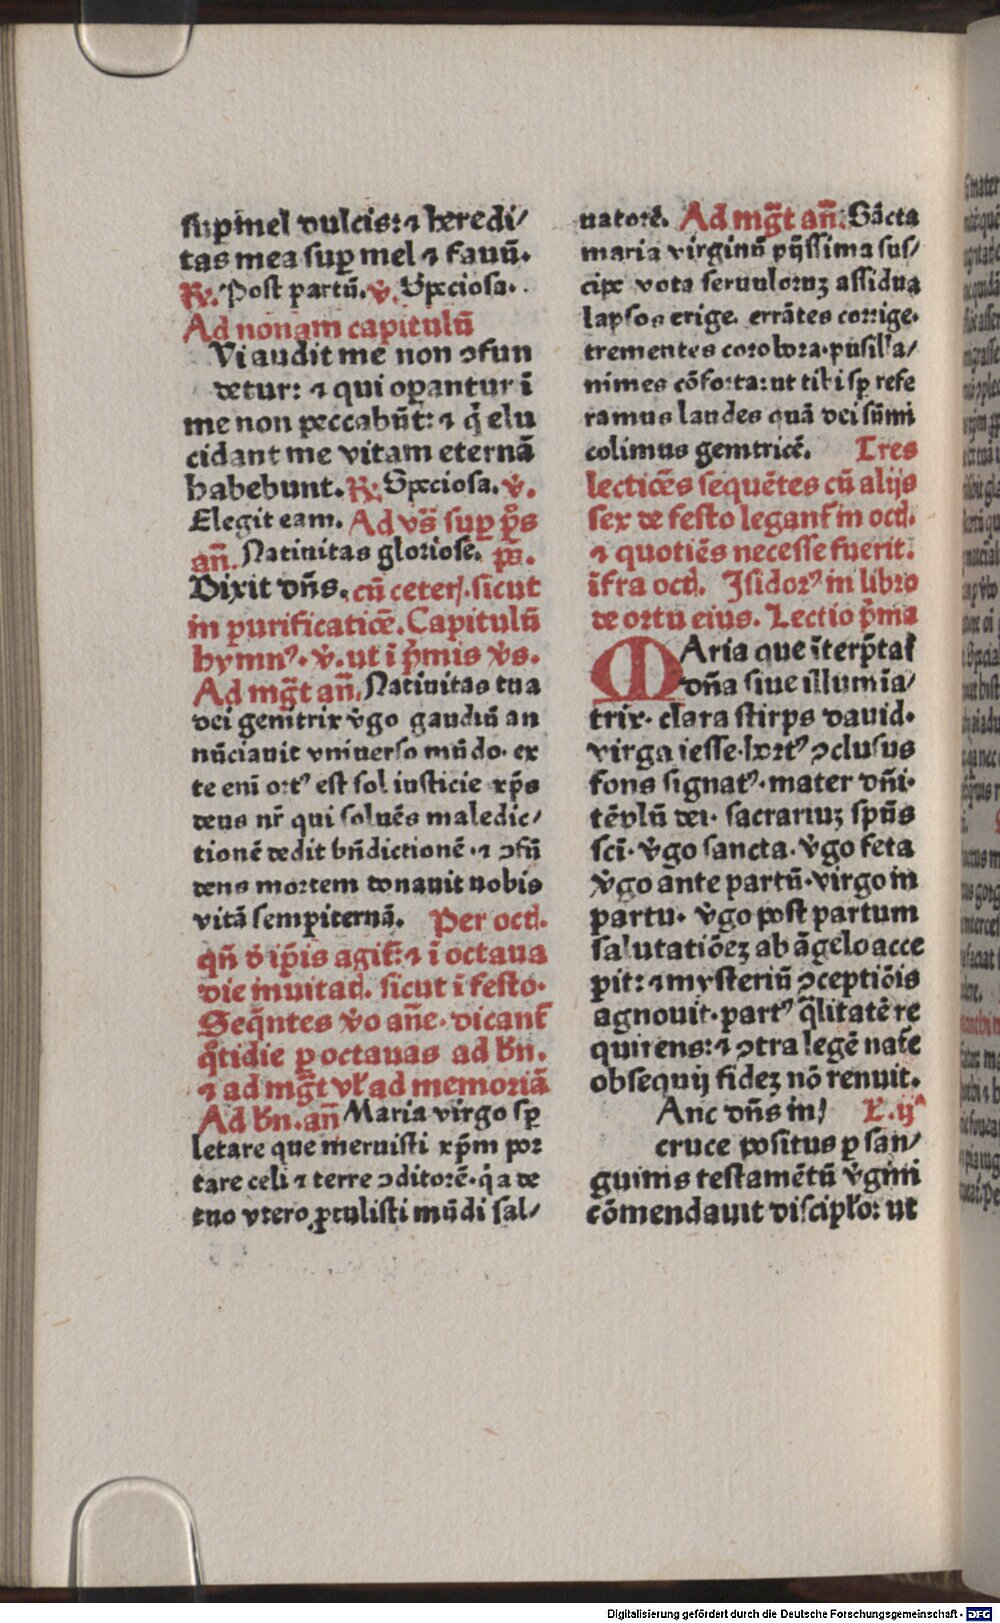 sup mel dulcis: ⁊ heredi/
tas mea sup̱ mel ⁊ fauū.
R̃. Post partū. v̊. Speciosa.
Ad nonam capitulū
Vi audit me non ꝯfun
detur: ⁊ qui oꝑantur ī
me non peccabūt: ⁊ q̇ elu
cidant me vitam eternā
habebunt. R̃. Speciosa. v̊.
Elegit eam. Ad vs̃ suꝑ p̃s
an̄. Natiuitas gloriose. ps̃.
Dixit dn̄s. cū ceteꝭ. sicut
in purificatiōe. Capitulū
hymnꝰ. v̊. ut ī p̃mis v̊s.
Ad mg̃t an̄. Natiuitas tua
dei genitrix v̊go gaudiū an
nūciauit vniuerso mūdo. ex
te eni ortꝰ est sol iusticie xp̄s
deus nr̄ qui soluēs maledic/
tionē dedit bn̄dictionē. ⁊ ꝯfū
dens mortem donauit nobis
vitā sempiternā. Per octꝭ.
qn̄ d̊ ip̄is agit᷑: ⁊ ī octaua
die inuitatꝭ. sicut ī festo.
Seq̄ntes v̊o an̄e. dicant᷑
q̊tidie ꝑ octauas ad bn̄.
⁊ ad mg̃t vl̄ ad memoriā
Ad bn̄. an̄ Maria virgo sꝑ
letare que meruisti xp̄m por
tare celi ⁊ terre ꝯditorē. q̇a de
tuo vtero ꝓtulisti mūdi sal/
uatorē. Ad mg̃t an̄. Sācta
maria virginū pijssima sus/
cipe vota seruuloruꝫ assidua
lapsos erige. errātes corrige.
trementes corobora. pusilla/
nimes cōforta: ut tibi sꝑ refe
ramus laudes quā dei sūmi
colimus genitricē. Tres
lectiōes sequētes cū alijs
sex de festo legant᷑ in octꝭ.
⁊ quotiēs necesse fuerit.
īfra octꝭ. Isidorꝰ in libro
de ortu eius. Lectio p̃ma
MAria que īterp̄tat᷑
dn̄a siue illumīa/
trix. clara stirps dauid.
virga iesse. hortꝰ ꝯclusus
fons signatꝰ. mater dn̄i.
tēplū dei. sacrariuꝫ spūs
sci̅. v̊go sancta. v̊go feta
v̊go ante partū. virgo in
partu. v̊go post partum
salutatiōeꝫ ab āgelo acce
pit: ⁊ mysteriū ꝯceptiōis
agnouit. partꝰ q̄litatē re
quirens: ⁊ ꝯtra legē nat᷑e
obsequij fideꝫ nō renuit.
Anc dn̄s in L̃. ijᵃ
cruce positus ꝑ san/
guinis testamētū v̊gini
cōmendauit discipl̄o: ut
Digitalisierung gefördert durch die Deutsche Forschungsgemeinschaft - DFG